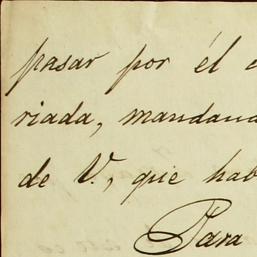 pasar por él
riada, mandand
de V., que hab
Para